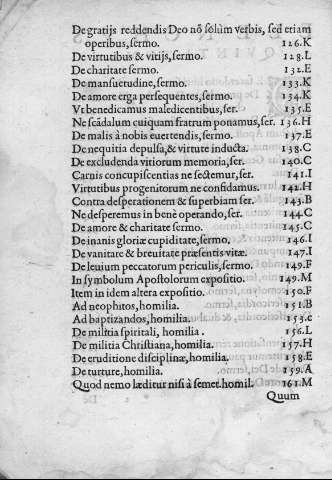 De gratijs reddendis Deo nõ solùm verbis, sed etiam
operibus, sermo. 126.K
De virtutibus & vitijs, sermo. 128.L
De charitate sermo. 132.E
De mansuetudine, sermo. 133.K
De amore erga persequentes, sermo. 134.K
Vt benedicamus maledicentibus, ser. 135.E
Ne scãdalum cuiquam fratrum ponamus, ser. 136.H
De malis à nobis euertendis, sermo. 137.E
De nequitia depulsa, & virtute inducta. 138.C
De excludenda vitiorum memoria, ser. 140.C
Carnis concupiscentias ne sectemur, ser. 141.I
Virtutibus progenitorum ne confidamus. 142.H
Contra desperationem & superbiam ser. 143.B
Ne desperemus in benè operando, ser. 144.C
De amore & charitate sermo. 145.C
De inanis gloriæ cupiditate, sermo. 146.I
De vanitate & breuitate præsentis vitæ. 147.I
De leuium peccatorum periculis, sermo. 149.F
In symbolum Apostolorum expositio. 149.M
Item in idem altera expositio. 150.F
Ad neophitos, homilia. 151.B
Ad baptizandos, homilia. 153.c
De militia spiritali, homilia. 156.L
De militia Christiana, homilia. 157.H
De eruditione disciplinæ, homilia. 158.E
De turture, homilia. 159.A
Quod nemo læditur nisi à semet. homil. 161.M
Quum